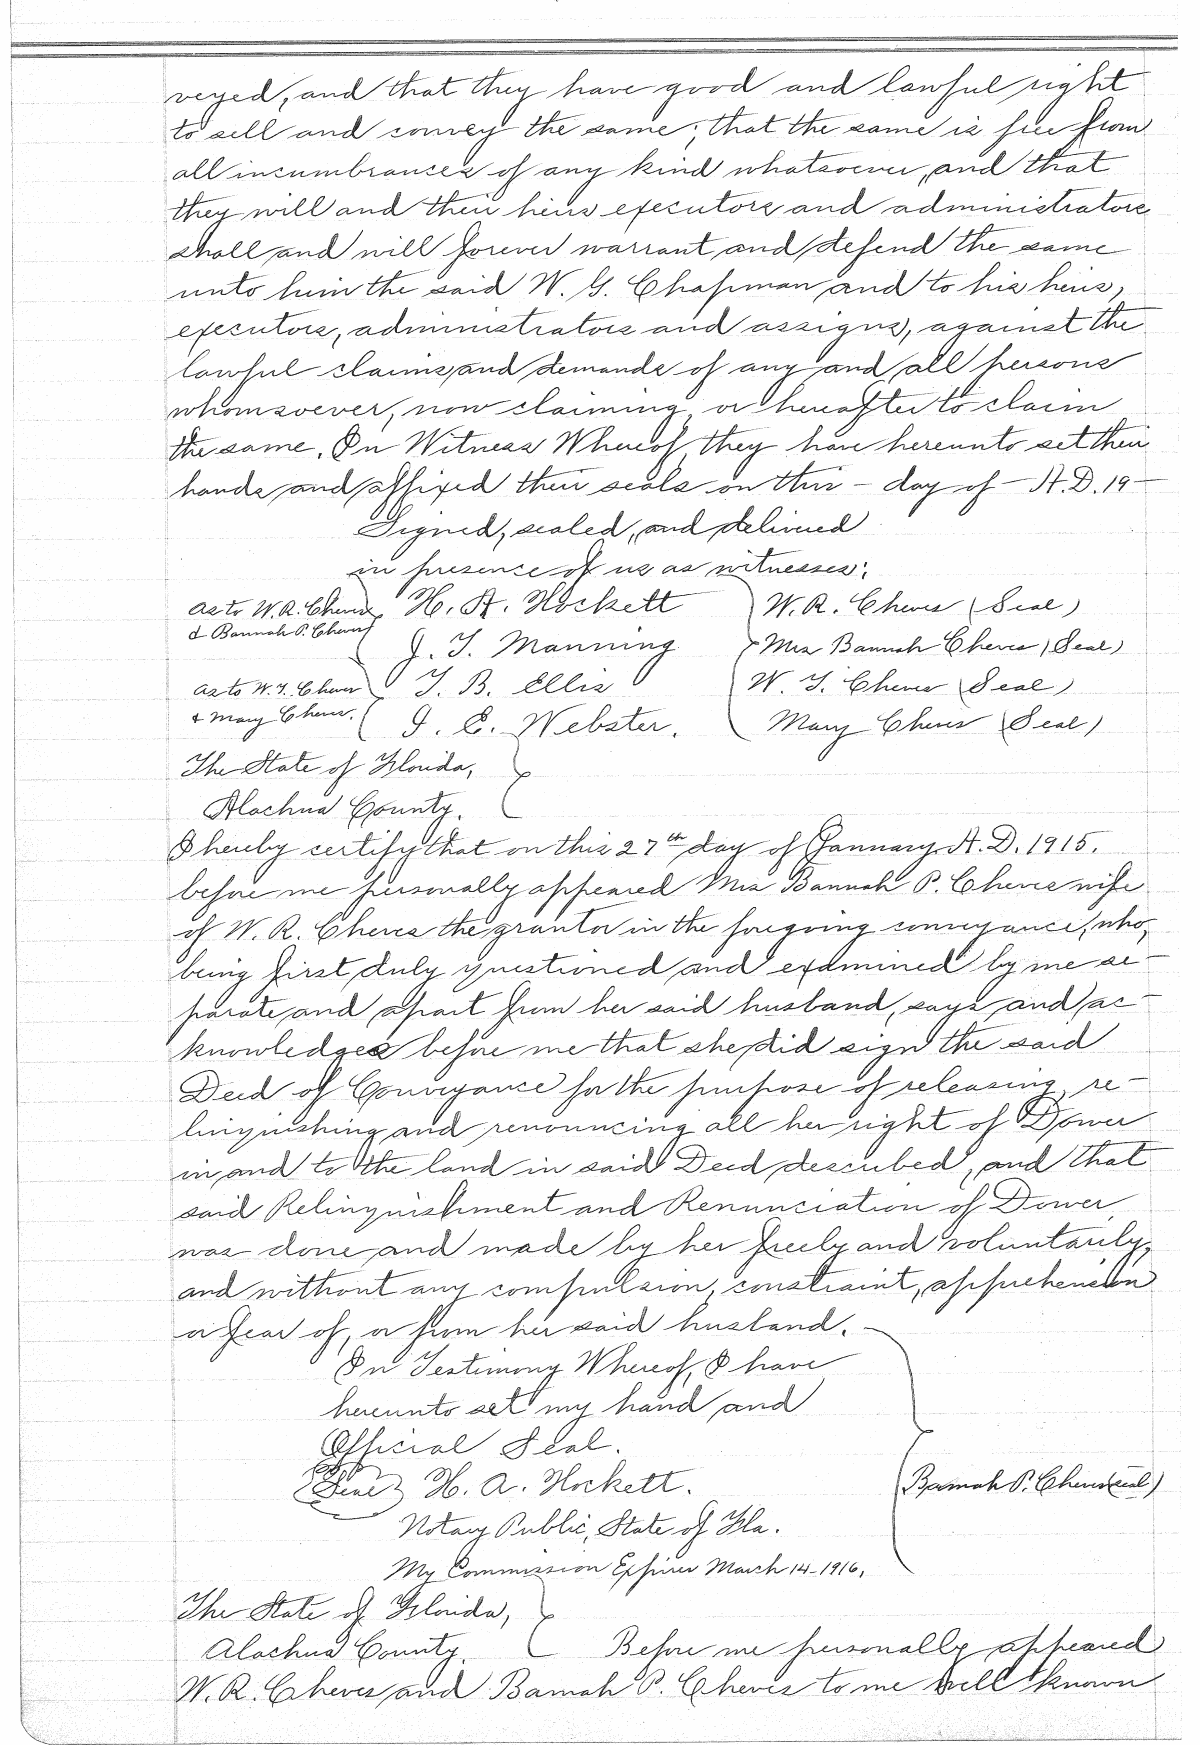 veyed, and that they have good and lawful right
to sell and convey the same; that the same is free from
all incumbrances of any kind whatsoever, and that
they will and their heirs executors and administrators
shall and will forever warrant and defend the same
unto him the said W. G. Chapman and to his heirs,
executors, administrators and assigns, against the
lawful claims and demands of any and all persons
whomsoever, now claiming or hereafter to claim
the same. In Witness Whereof, they have hereunto set their
hands and affixed their seals on this - day of - A.D. 19-
Signed, sealed, and delivered
in presence of us as witnesses:
as to W.R. Cheves H. A. Hockett W. R. Cheves (Seal)
& Bannah P. Cheves
J. T. Manning Mrs Bannah Cheves (Seal)
as to W. T. Cheves T. B. Ellis W. T. Cheves (Seal)
& Mary Cheves. J. E. Webster. Mary Cheves (Seal)
The State of Florida,
Alachua County.
I hereby certify that on this 27th day of January A. D. 1915.
before me personally appeared Mrs Bannah P. Cheves wife
of W. R. Cheves the grantor in the foregoing conveyance, who,
being first duly questioned and examined by me se-
parate and apart from her said husband, says and ac-
knowledges before me that she did sign the said
Deed of Conveyance for the purpose of releasing, re-
linquishing and renouncing all her right of Dower
in and to the land in said Deed described, and that
said Relinquishment and Renunciation of Dower
was done and made by her freely and voluntarily,
and without any compulsion, constraint, apprehension
or fear of, or from her said husband.
In Testimony Whereof, I have
hereunto set my hand and
Official Seal.
(Seal) H. A. Hockett. Bamah P. Cheves (Seal)
Notary Public, State of Fla.
My Commission Expires March 14-1916.
The State of Florida,
Alachua County. Before me personally appeared
W. R. Cheves and Bamah P. Cheves to me well known